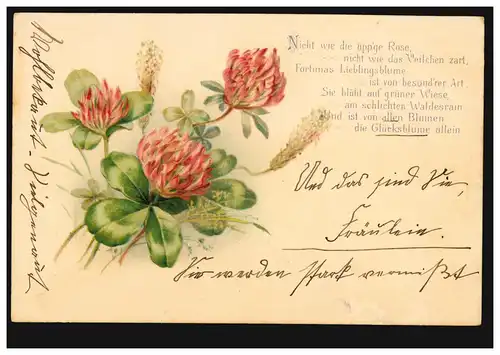 Nicht wie die üpp'ge Rose,
nicht wie das Veilchen zart,
Fortunas Lieblingsblume
ist von besond'rer Art.
Sie blüht auf grüner Wiese,
am schlichten Waldesrain
Und ist von allen Blumen
die Glücksblume allein
Und das sind Sie,
Fräulein.
Sie werden stark vermißt